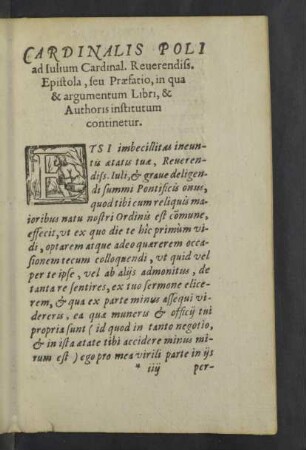 CARDINALIS POLI
ad Iulium Cardinal. Reuerendiss.
Epistola, seu Præfatio, in qua
& argumentum Libri, &
Authoris institutum
continetur.
ETSI imbecillitas ineun-
tis ætatis tuæ, Reueren-
diss. Iuli, & graue deligen-
di summi Pontificis onus,
quod tibi cum reliquis ma-
ioribus natu nostri Ordinis est cōmune,
effecit, vt ex quo die te hic primùm vi-
di, optarem atque adeo quærerem occa-
sionem tecum colloquendi, vt quid vel
per te ipse, vel ab alijs admonitus, de
tanta re sentires, ex tuo sermone elice-
rem, & qua ex parte minus assequi vi-
dereris, ea quæ muneris & officij tui
propria sunt (id quod in tanto negotio,
& in ista ætate tibi accidere minus mi-
rum est) ego pro mea virili parte in ijs
* iij per-